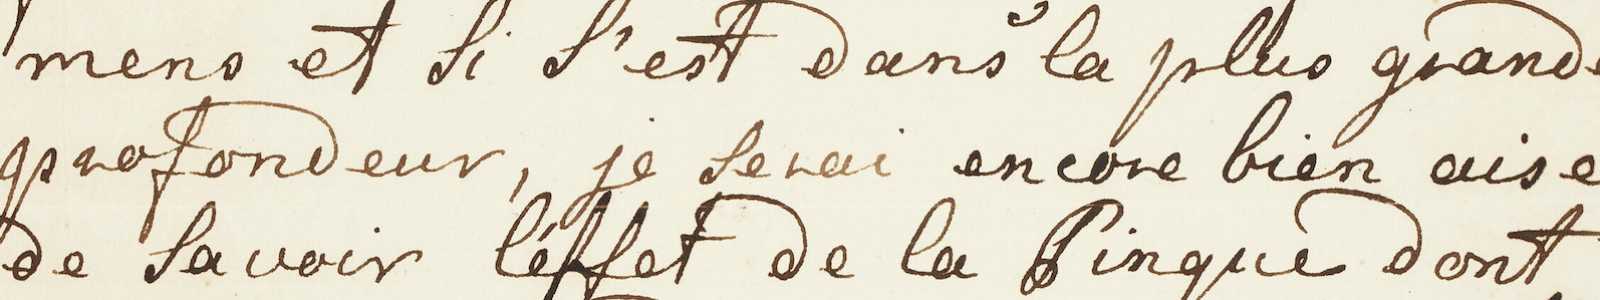 mens et si s'est dans la plus grande
profondeur, je serai encore bien aise
de savoir l'éffet de la Pinque dont